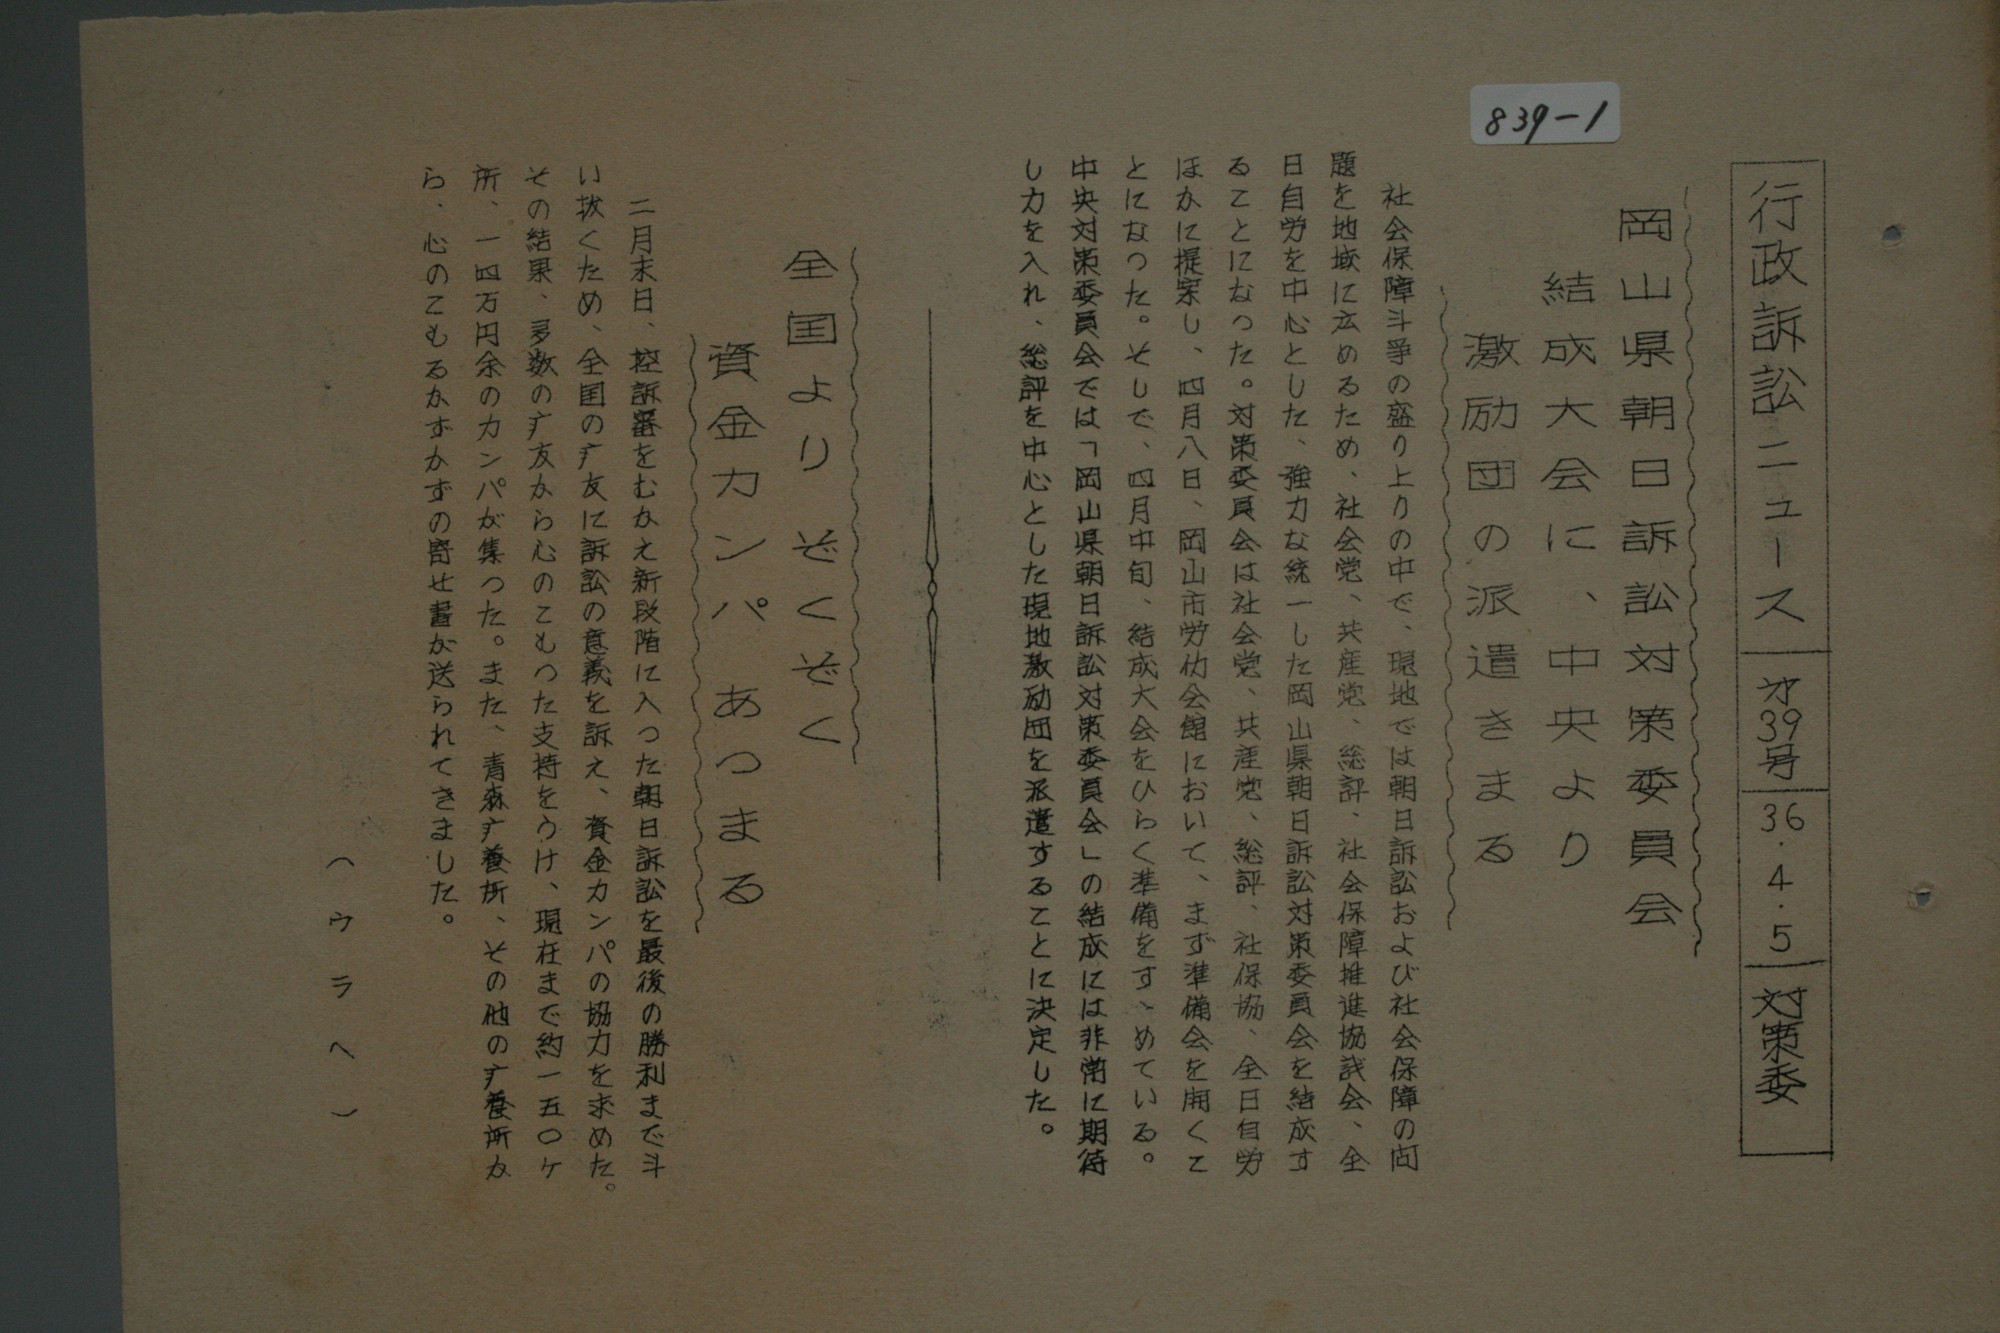 839-1
行政訴訟ニュース 才39号 36・4・5 対策委
岡山県朝日訴訟対策委員会
結成大会に、中央より
激励団の派遣きまる
社会保障斗争の盛り上りの中で、現地では朝日訴訟および社会保障の问
題を地域に広めるため、社会党、共産党、総評、社会保障推進協議会、全
日自労を中心とした、強力な統一した岡山県朝日訴訟対策委員会を結成す
ることになった。対策委員会は社会党、共産党、総評、社保協、全日自労
ほかに提案し、四月八日、岡山市労仂会館において、まず準備会を開くこ
とになった。そしで、四月中旬、結成大会をひらく準備をすゝめている。
中央対策委員会では「岡山県朝日訴訟対策委員会」の結成には非常に期待
し力を入れ、総評を中心とした現地激励団を派遣することに決定した。
全国より ぞくぞく
資金カンパ あつまる
二月末日、控訴審をむかえ新段階に入った朝日訴訟を最後の勝利まで斗
い抜くため、全国の疒友に訴訟の意義を訴え、資金カンパの協力を求めた。
その結果、多数の疒友から心のこもった支持をうけ、現在まで約一五〇ケ
所、一四万円余のカンパが集った。また、青森疒養所、その他の疒養所か
ら、心のこもるかずかずの寄せ書が送られてきました。
(ウラへ)